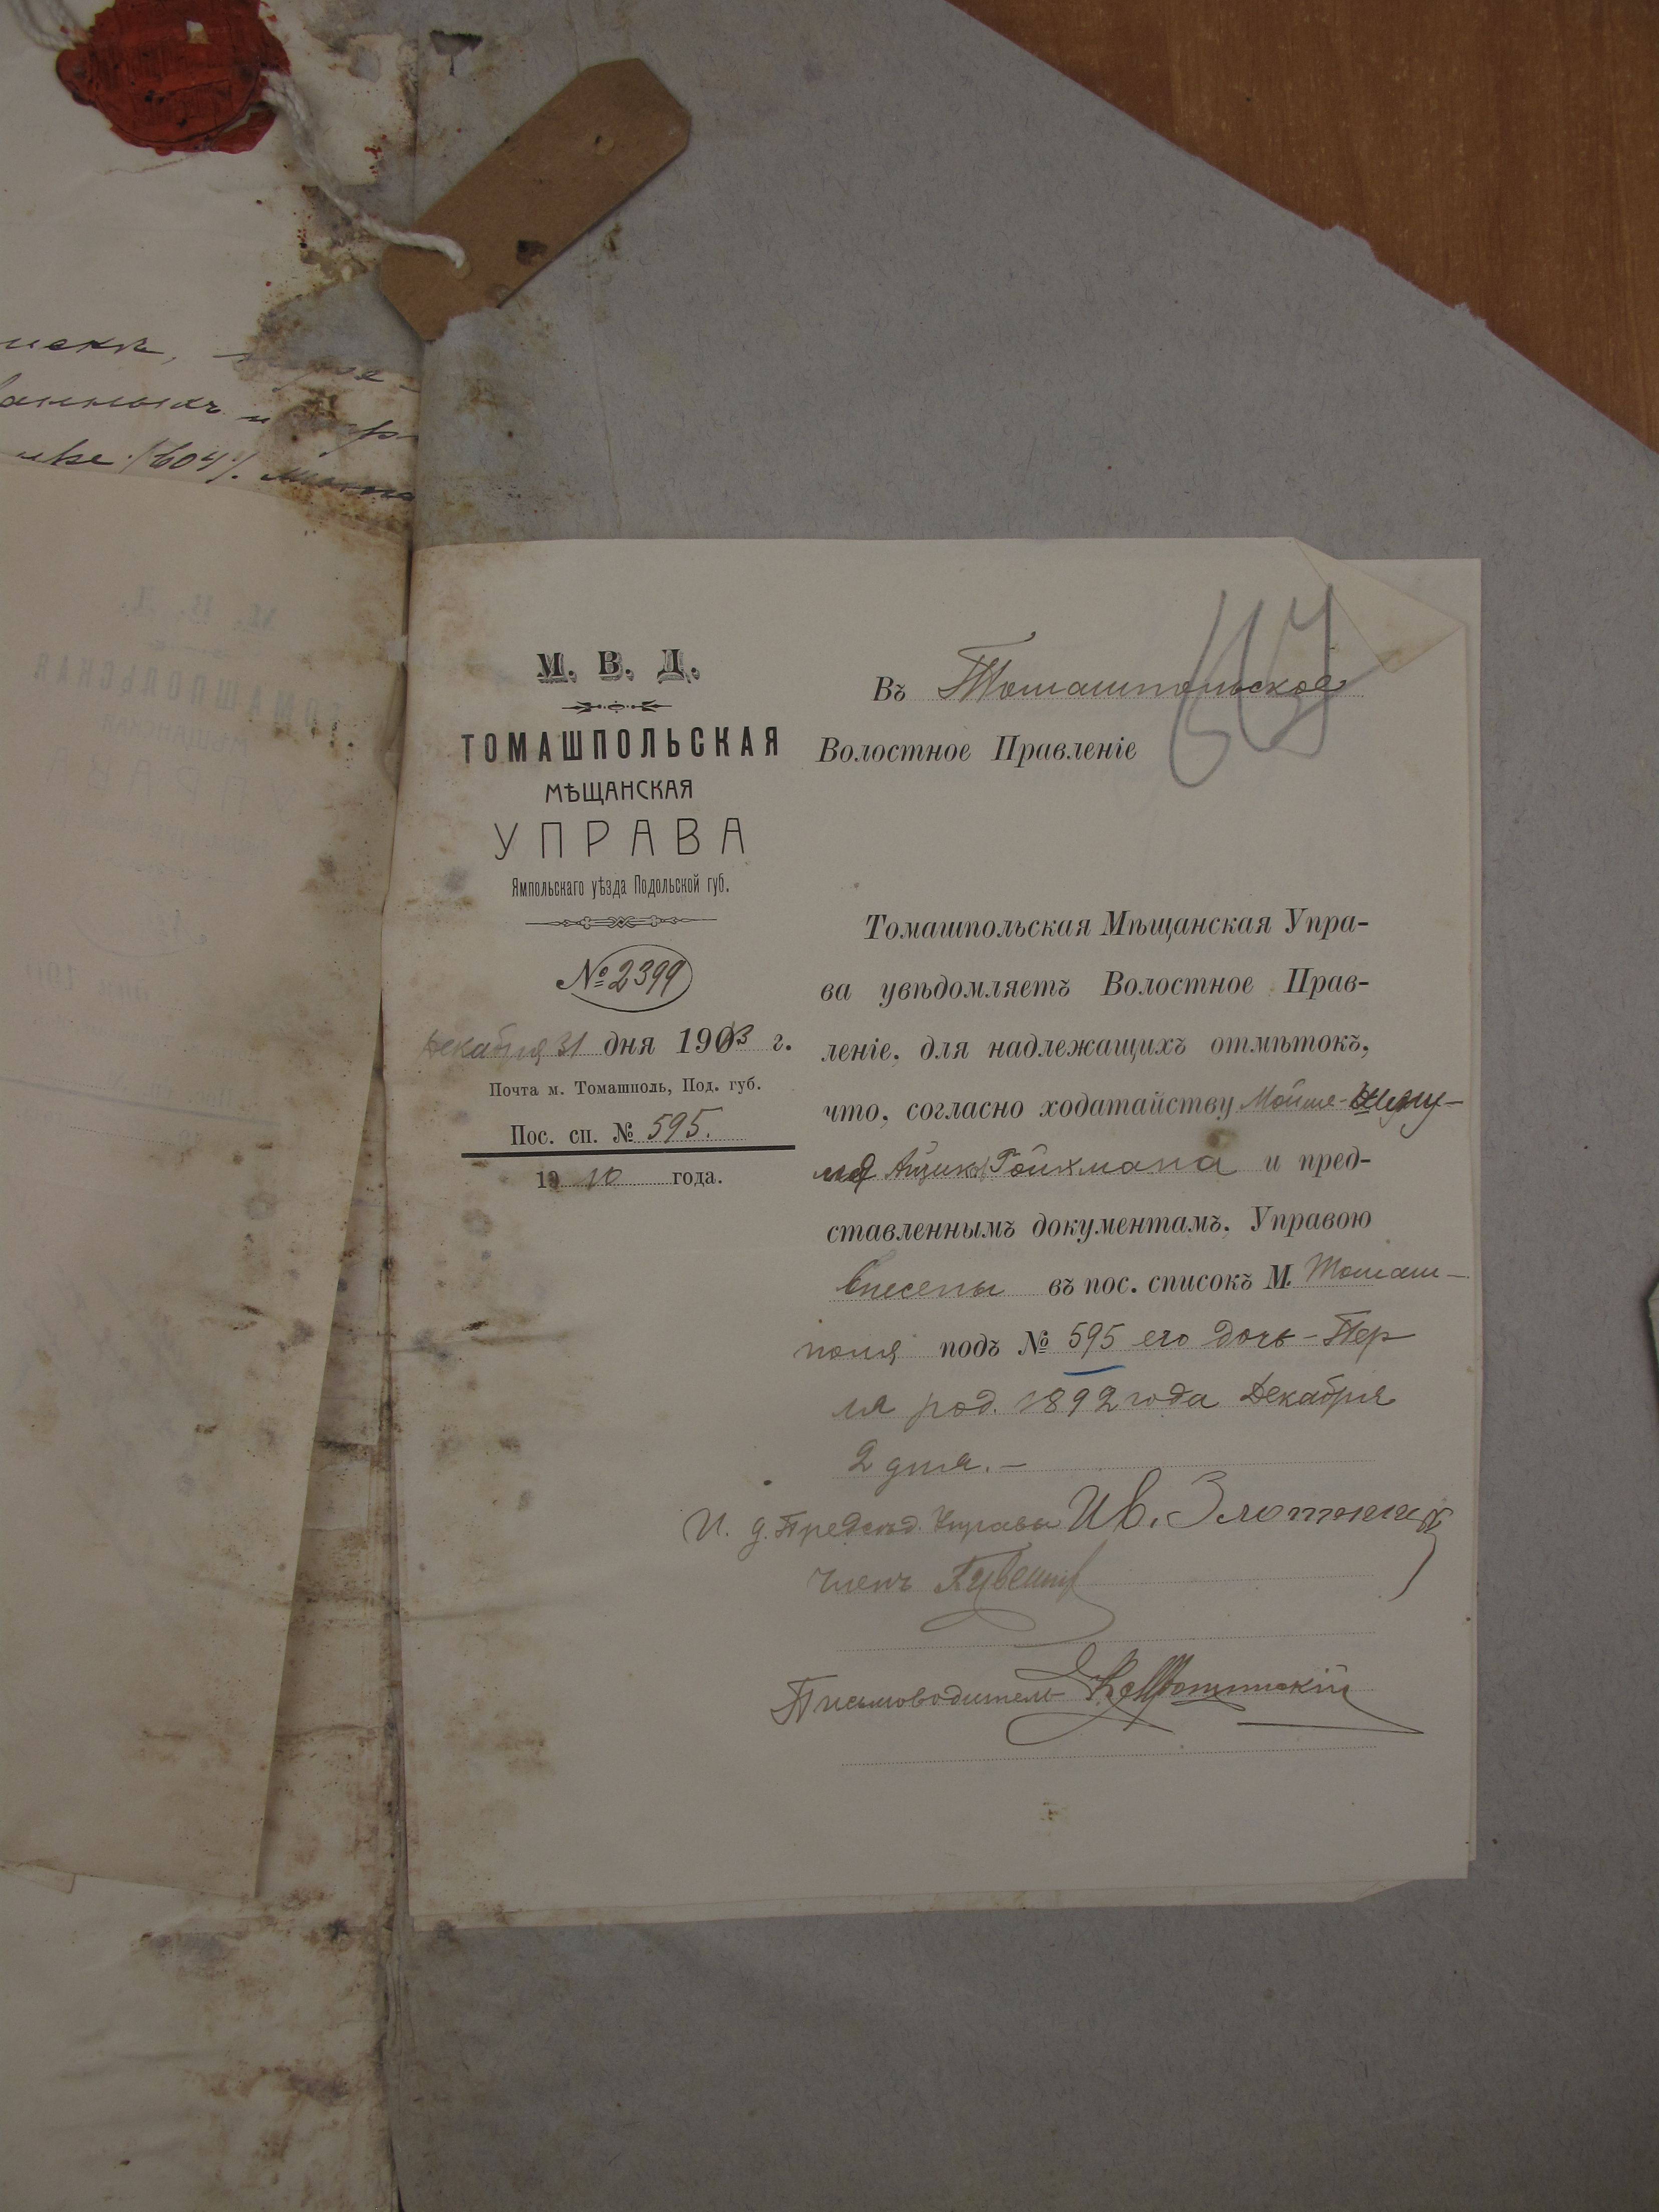 М. В. Д.
ТОМАШПОЛЬСКАЯ
МѢЩАНСКАЯ
УПРАВА
Ямпольскаго уѣзда Подольской губ.
№ 2399
Декабря 31 дня 1903 г.
Почта м. Томашполь, Под. губ.
Пос. сп. № 595.
19 10 года.
Въ Томашпольское
Волостное Правленіе
Томашпольская Мѣщанская Упра-
ва увѣдомляетъ Волостное Прав-
леніе, для надлежащихъ отмѣтокъ,
что, согласно ходатайству Мойше-
Гойхмана и пред-
ставленнымъ документамъ, Управою
внесены въ пос. списокъ М. Томаш-
поля подъ № 595 его дочь - Пер
ля род. 1892 года Декабря
2 дня. —
И. д. Предсѣд. Управы Ив.
Членъ
Письмоводитель